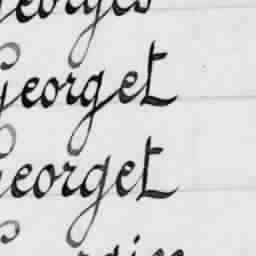 Georges
Georget
Georget